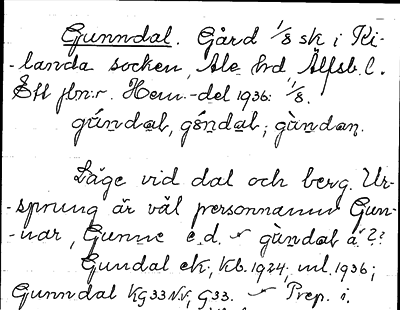 Gunndal. Gård 1/8 sk i Ki-
-landa socken, Ale hd Älfsb. l.
Ett jbn:r. Hem.-del 1936: 1/8.
gúndal, göndal; gùndan.
Läge vid dal och berg. Ur-
-sprung är väl personnamn Gun-
-nar, Gunne e.d. gùndal å2?
Gundal ek, kb. 1924, ml. 1936;
Gunndal KG33NV, G33. Prep. i.